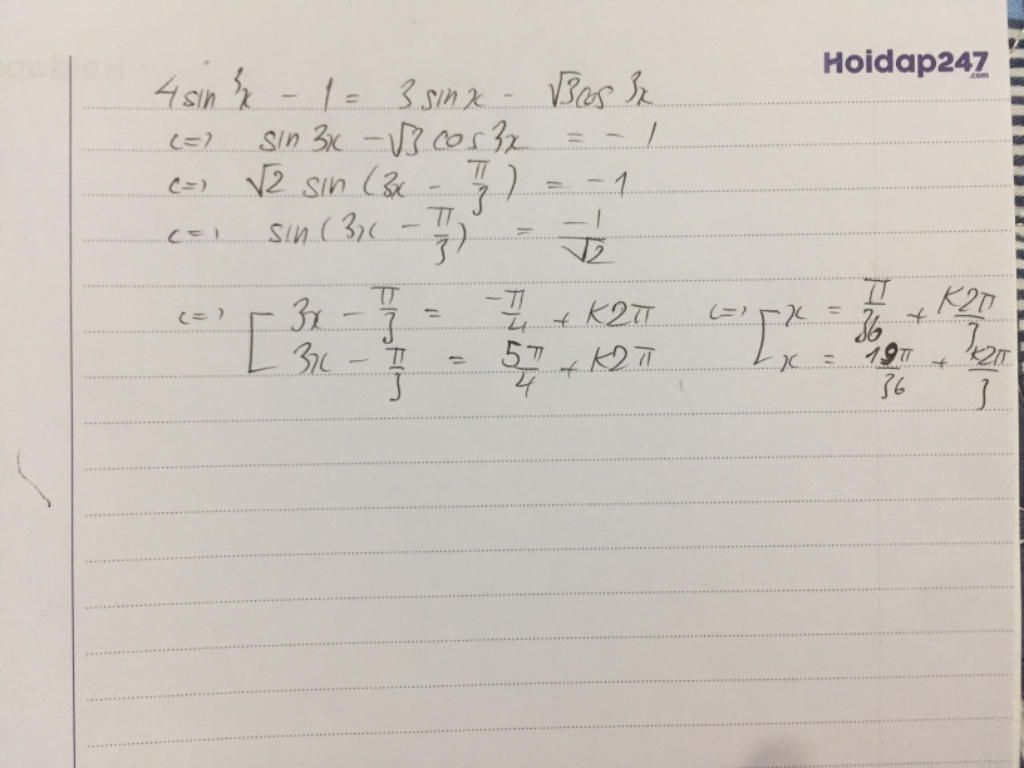 Hoidap247
.com
4 sin³x - 1 = 3 sin x - √3 cos 3x
<=> sin 3x - √3 cos 3x = - 1
<=> √2 sin (3x - π/3) = - 1
<=> sin (3x - π/3) = -1/√2
<=> [ 3x - π/3 = -π/4 + K2π <=> [ x = π/36 + K2π/3
3x - π/3 = 5π/4 + K2π x = 19π/36 + K2π/3